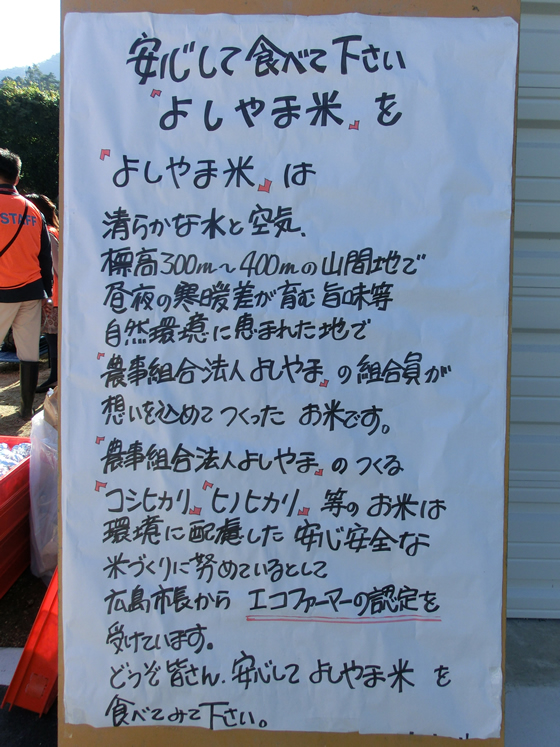 安心して食べて下さい
『よしやま米』を
『よしやま米』は
清らかな水と空気、
標高300m~400mの山間地で
昼夜の寒暖差が育む旨味等
自然環境に恵まれた地で
『農事組合法人よしやま』の組合員が
想いを込めてつくった お米です。
『農事組合法人よしやま』のつくる
『コシヒカリ』『ヒノヒカリ』等のお米は
環境に配慮した安心安全な
米づくりに努めているとして
広島市長から エコファーマーの認定を
受けています。
どうぞ皆さん、安心して よしやま米 を
食べてみて下さい。
STAFF